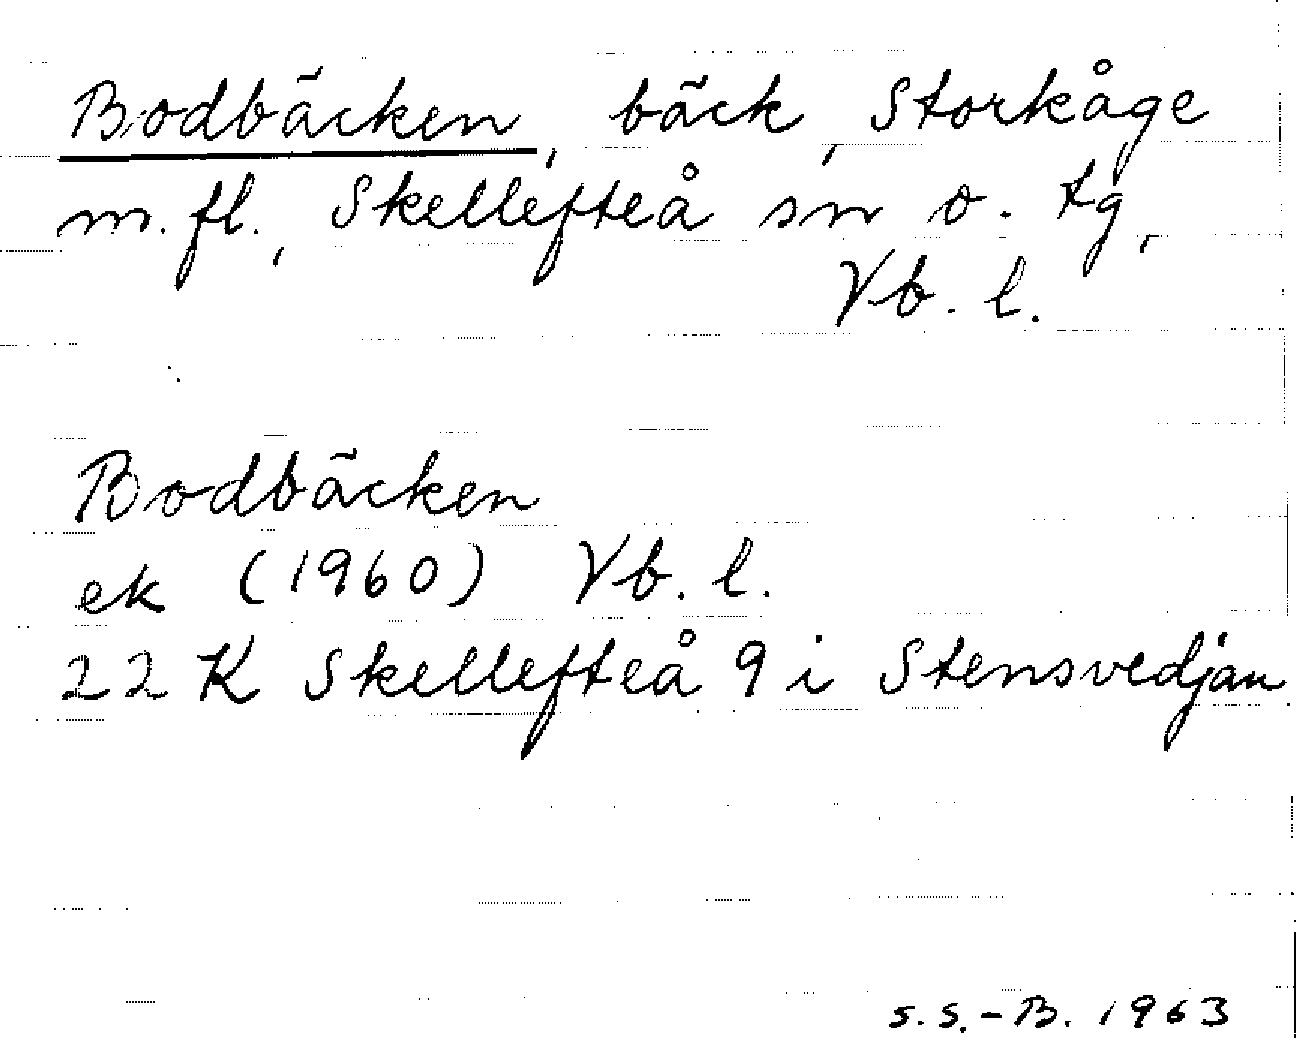 Bodbäcken, bäck, Storkåge
m.fl., Skellefteå sn o. tg,
Vb. l.
Bodbäcken
ek (1960) Vb. l.
22 K Skellefteå 9 i Stensvedjan
S.S.-B. 1963